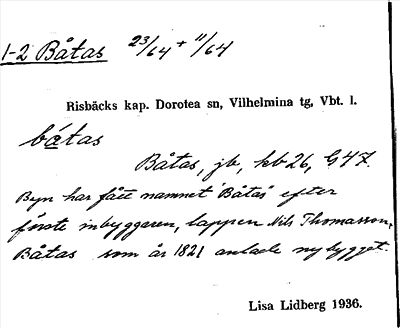 1-2 Båtas 23/64 + 11/64
Risbäcks kap. Dorotea sn, Vilhelmina tg, Vbt. l.
båtas
Båtas, jb, kb 26, G47.
Byn har fått namnet "Båtas" efter
förste inbyggaren, lappen Nils Thomasson,
Båtas som år 1821 anlade nybygget.
Lisa Lidberg 1936.